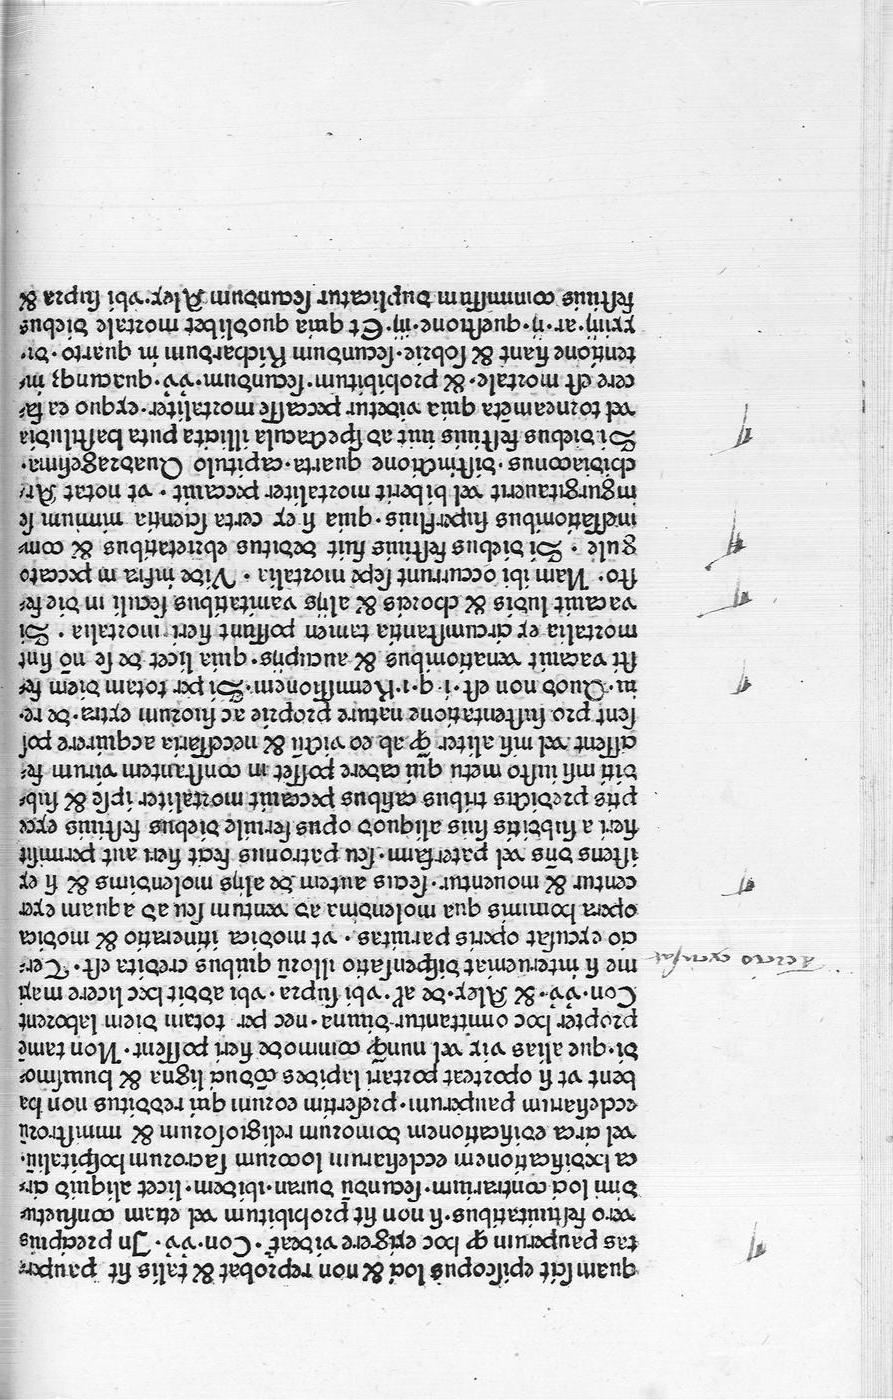 quam scit episcopus loci & non reprobat & talis sit pauper⸗
tas pauperum ꝙ hoc exigere videat'. Con.vv. In precipuis
vero festiuitatibus. si non sit prohibitum vel etiam consuetu⸗
dini loci contrarium. secundū duran. ibidem. licet aliquid cir⸗
ca hedificationem ecclesiarum locorum sacrorum hospitaliū.
vel circa edificationem domorum religiosorum & ministrorū
ecclesiarum pauperum. presertim eorum qui redditus non ha
bent vt si oporteat portari lapides ligna & huiusmo⸗
di. que alias vix vel nunꝙ commode fieri possent. Non tamē
propter hoc omittantur diuina. nec per totam diem laborent
Con.vv. & Alex. de al'. vbi supra. vbi addit hec licere maxi
me si interueniat dispensatio illorū quibus credita est. Ter⸗
cio excusat operis paruitas. vt modica itineratio & modica
opera hominis qua molendina ad ventum seu ad aquam exer
centur & mouentur. secus autem de alijs molendinis & si ex
istens dn̄s vel paterfam. seu patronus fecit fieri aut permisit
fieri a subditis suis aliquod opus seruile diebus festiuis exce
ptis predictis tribus casibus peccauit mortaliter ipse & sub⸗
diti nisi iusto metu qui cadere posset in constantem virum fe⸗
cissent vel nisi aliter ꝙ ab eo victū & necessaria acquirere pos
sent pro sustentatione nature proprie ac suorum extra. de re⸗
iu. Quod non est. i. q. i. Remissionem. Si per totam diem fe⸗
sti vacauit venationibus & aucupijs. quia licet de se nō sint
mortalia ex circumstantia tamen possunt fieri mortalia. Si
vacauit ludis & choreis & alijs vanitatibus seculi in die fe⸗
sto. Nam ibi occurrunt sepe mortalia. Vide infra in peccato
gule. Si diebus festiuis fuit deditus ebrietatibus & com⸗
messationibus superfluis. quia si ex certa scientia nimium se
ingurgitauerit vel biberit mortaliter peccauit. vt notat Ar⸗
chidiaconus. distinctione quarta. capitulo Quadragesima.
Si diebus festiuis iuit ad spectacula illicita puta hastiludia
vel torneamēta quia videtur peccasse mortaliter. ex quo ea fa⸗
cere est mortale. & prohibitum. secundum. vv. in⸗
tentione fiant & sobrie. secundum Richardum in quarto. di.
xviij. ar. ij. questione. iij. Et quia quodlibet mortale diebus
festiuis commissum duplicatur secundum Alex. vbi supra &
tercio excusat